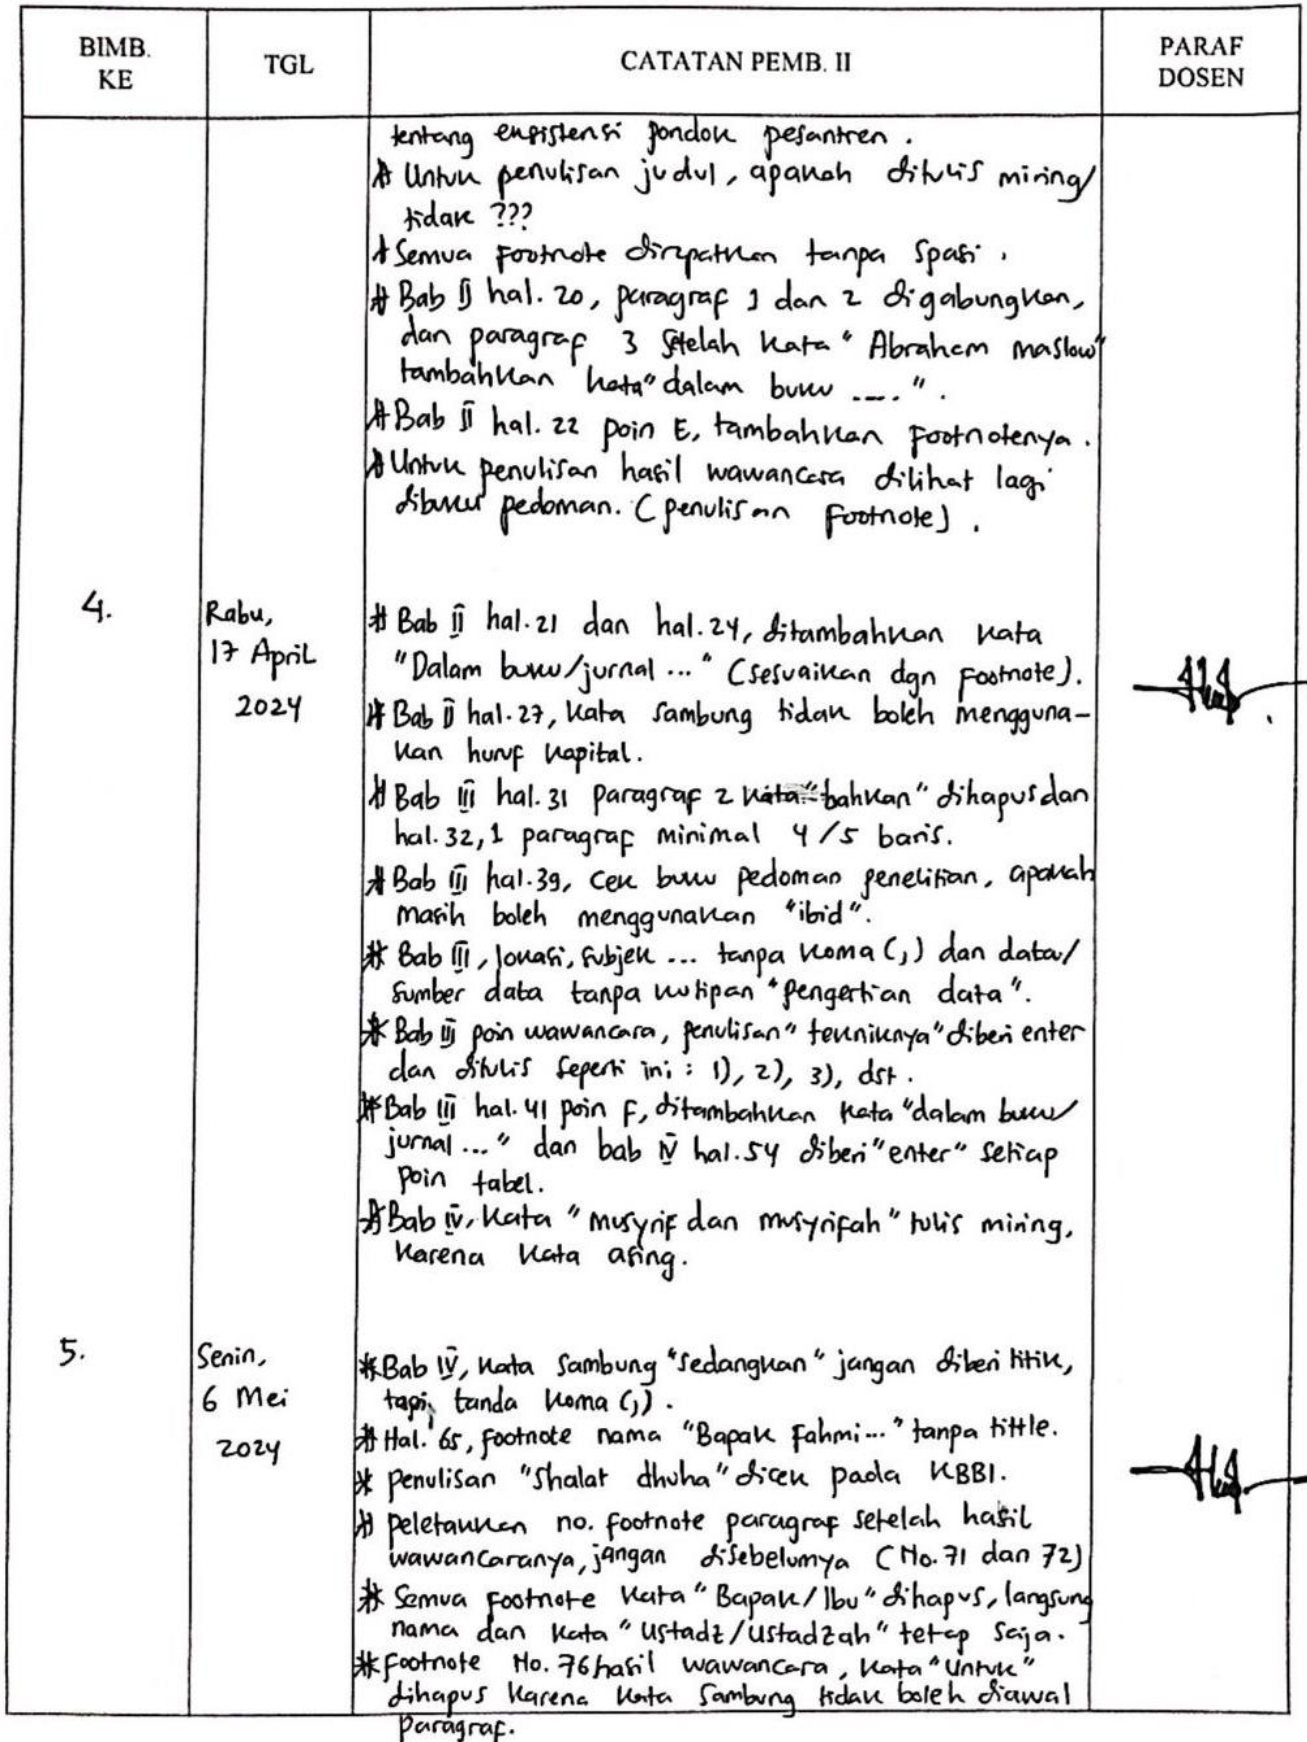 BIMB. KE
TGL
CATATAN PEMB. II
PARAF DOSEN
tentang eksistensi pondok pesantren.
* Untuk penulisan judul, apakah ditulis miring/
tidak ???
* Semua Footnote dirapatkan tanpa spasi.
* Bab II hal. 20, paragraf 1 dan 2 digabungkan,
dan paragraf 3 setelah kata "Abraham maslow"
tambahkan kata "dalam buku ....".
* Bab II hal. 22 poin E, tambahkan Footnotenya.
* Untuk penulisan hasil wawancara dilihat lagi
dibuku pedoman. (penulisan Footnote).
4.
Rabu,
17 April
2024
* Bab II hal. 21 dan hal. 24, ditambahkan kata
"Dalam buku/jurnal ..." (sesuaikan dgn Footnote).
* Bab II hal. 27, kata sambung tidak boleh mengguna-
kan huruf kapital.
* Bab III hal. 31 paragraf 2 kata "bahkan" dihapus dan
hal. 32, 1 paragraf minimal 4/5 baris.
* Bab III hal. 39, cek buku pedoman penelitian, apakah
masih boleh menggunakan "ibid".
* Bab III, lokasi, subjek ... tanpa koma (,) dan data/
sumber data tanpa kutipan "pengertian data".
* Bab III poin wawancara, penulisan "tekniknya" diberi enter
dan ditulis seperti ini : 1), 2), 3), dst.
* Bab III hal. 41 poin F, ditambahkan kata "dalam buku/
jurnal ..." dan bab IV hal. 54 diberi "enter" setiap
poin tabel.
* Bab IV, kata "musyrif dan musyrifah" tulis miring,
karena kata asing.
5.
Senin,
6 Mei
2024
* Bab IV, kata sambung "sedangkan" jangan diberi titik,
tapi, tanda koma (,).
* Hal. 65, footnote nama "Bapak Fahmi..." tanpa tittle.
* penulisan "Shalat dhuha" dicek pada KBBI.
* peletakkan no. footnote paragraf setelah hasil
wawancaranya, jangan disebelumya (No. 71 dan 72)
* Semua Footnote kata "Bapak/Ibu" dihapus, langsung
nama dan kata "ustadz/ustadzah" tetap saja.
* Footnote No. 76 hasil wawancara, kata "Untuk"
dihapus karena kata sambung tidak boleh diawal
paragraf.